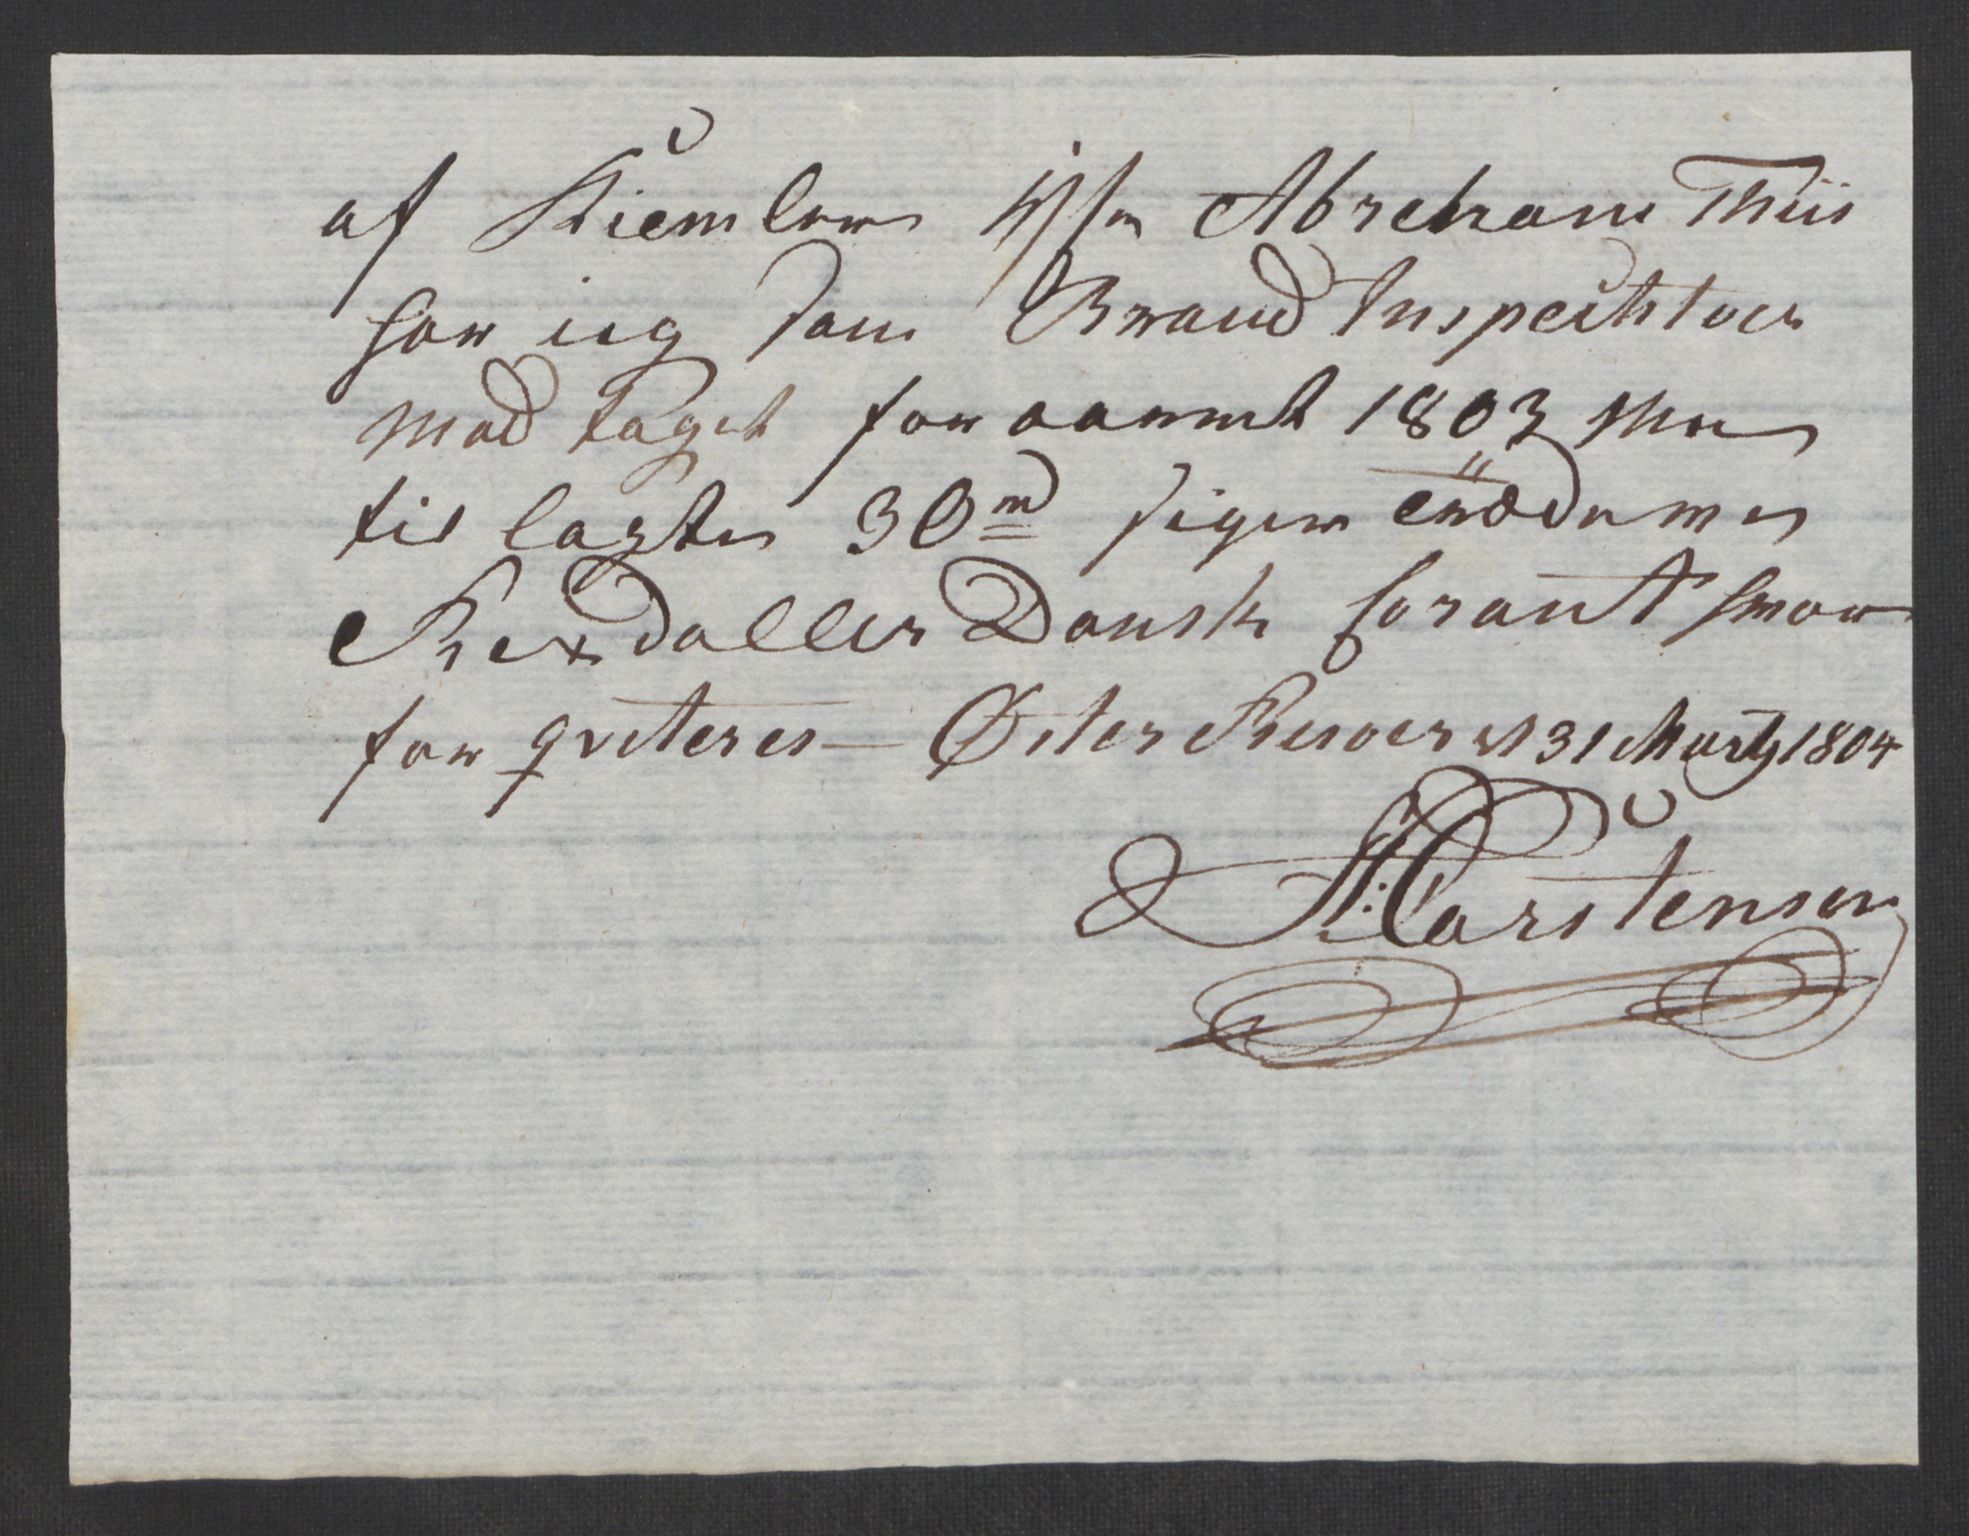 af Kiembær Hr Abreham Thiis
har ieg som Brand Inspecktoer
mod taget for aaret 1803
til lagte 30 siger
Rexdaller Dansk Corant hvor
for qviteres — Øster Riisoer d 31 Marty 1804
A: Carstensen